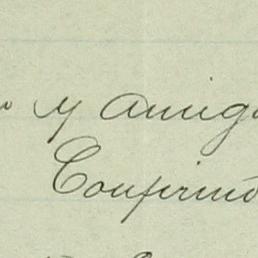 y amig
Confirmo